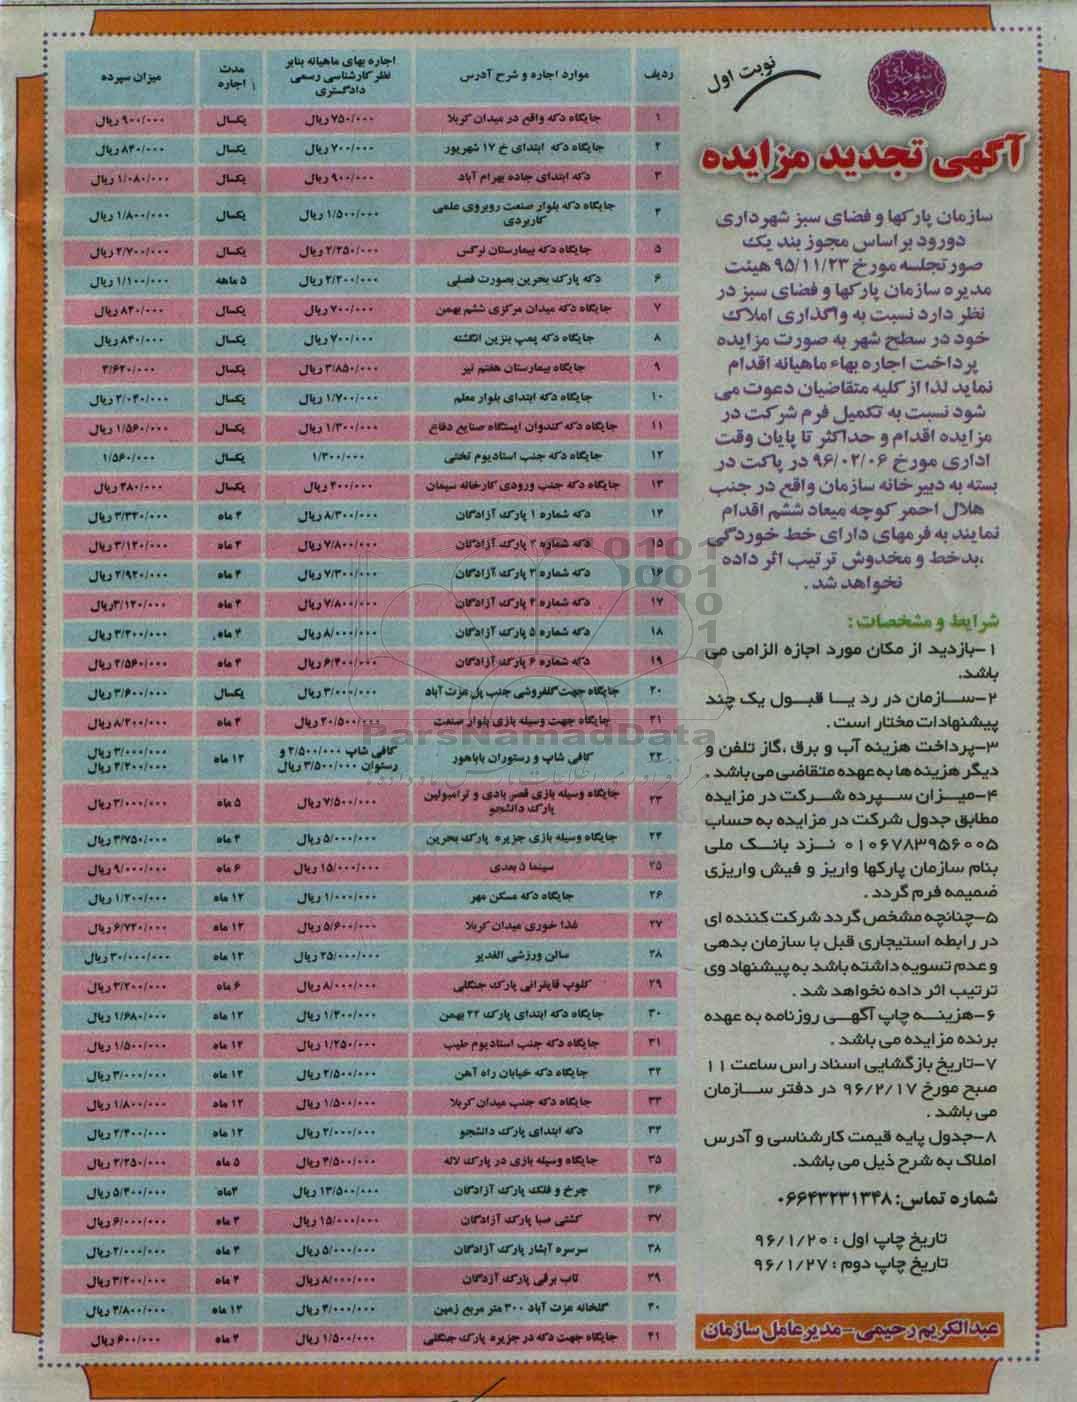 شهرداری
دورود
نوبت اول
آگهی تجدید مزایده
سازمان پارکها و فضای سبز شهرداری
دورود براساس مجوز بند یک
صورتجلسه مورخ ۹۵/۱۱/۲۳ هیئت
مدیره سازمان پارکها و فضای سبز در
نظر دارد نسبت به واگذاری املاک
خود در سطح شهر به صورت مزایده
پرداخت اجاره بهاء ماهیانه اقدام
نماید لذا از کلیه متقاضیان دعوت می
شود نسبت به تکمیل فرم شرکت در
مزایده اقدام و حداکثر تا پایان وقت
اداری مورخ ۹۶/۰۲/۰۶ در پاکت در
بسته به دبیرخانه سازمان واقع در جنب
هلال احمر کوچه میعاد ششم اقدام
نمایند به فرمهای دارای خط خوردگی
،بدخط و مخدوش ترتیب اثر داده
نخواهد شد .
شرایط و مشخصات :
۱-بازدید از مکان مورد اجازه الزامی می
باشد.
۲-سازمان در رد یا قبول یک چند
پیشنهادات مختار است .
۳-پرداخت هزینه آب و برق ،گاز تلفن و
دیگر هزینه ها به عهده متقاضی می باشد .
۴-میزان سپرده شرکت در مزایده
مطابق جدول شرکت در مزایده به حساب
۰۱۰۶۷۸۳۹۵۶۰۰۵ نزد بانک ملی
بنام سازمان پارکها واریز و فیش واریزی
ضمیمه فرم گردد .
۵-چنانچه مشخص گردد شرکت کننده ای
در رابطه استیجاری قبل با سازمان بدهی
و عدم تسویه داشته باشد به پیشنهاد وی
ترتیب اثر داده نخواهد شد .
۶-هزینه چاپ آگهی روزنامه به عهده
برنده مزایده می باشد .
۷-تاریخ بازگشایی اسناد راس ساعت ۱۱
صبح مورخ ۹۶/۲/۱۷ در دفتر سازمان
می باشد .
۸-جدول پایه قیمت کارشناسی و آدرس
املاک به شرح ذیل می باشد.
شماره تماس: ۰۶۶۴۳۲۳۱۳۴۸
تاریخ چاپ اول : ۹۶/۱/۲۰
تاریخ چاپ دوم : ۹۶/۱/۲۷
عبدالکریم رحیمی-مدیرعامل سازمان
ردیف موارد اجاره و شرح آدرس اجاره بهای ماهیانه بنابر نظر کارشناسی رسمی دادگستری مدت اجاره میزان سپرده
۱ جایگاه دکه واقع در میدان کربلا ۷۵۰/۰۰۰ ریال یکسال ۹۰۰/۰۰۰ ریال
۲ جایگاه دکه ابتدای خ ۱۷ شهریور ۷۰۰/۰۰۰ ریال یکسال ۸۴۰/۰۰۰ ریال
۳ دکه ابتدای جاده بهرام آباد ۹۰۰/۰۰۰ ریال یکسال ۱/۰۸۰/۰۰۰ ریال
۴ جایگاه دکه بلوار صنعت روبروی علمی کاربردی ۱/۵۰۰/۰۰۰ ریال یکسال ۱/۸۰۰/۰۰۰ ریال
۵ جایگاه دکه بیمارستان نرگس ۲/۲۵۰/۰۰۰ ریال یکسال ۲/۷۰۰/۰۰۰ ریال
۶ دکه پارک بحرین بصورت فصلی ۲/۲۰۰/۰۰۰ ریال ۵ ماهه ۱/۱۰۰/۰۰۰ ریال
۷ جایگاه دکه میدان مرکزی ششم بهمن ۷۰۰/۰۰۰ ریال یکسال ۸۴۰/۰۰۰ ریال
۸ جایگاه دکه پمپ بنزین انگشته ۷۰۰/۰۰۰ ریال یکسال ۸۴۰/۰۰۰ ریال
۹ جایگاه بیمارستان هفتم تیر ۳/۸۵۰/۰۰۰ ریال یکسال ۴/۶۲۰/۰۰۰
۱۰ جایگاه دکه ابتدای بلوار معلم ۱/۷۰۰/۰۰۰ ریال یکسال ۲/۰۴۰/۰۰۰ ریال
۱۱ جایگاه دکه کندوان ایستگاه صنایع دفاع ۱/۳۰۰/۰۰۰ ریال یکسال ۱/۵۶۰/۰۰۰ ریال
۱۲ جایگاه دکه جنب استادیوم تختی ۱/۳۰۰/۰۰۰ یکسال ۱/۵۶۰/۰۰۰
۱۳ جایگاه دکه جنب ورودی کارخانه سیمان ۴۰۰/۰۰۰ ریال یکسال ۴۸۰/۰۰۰ ریال
۱۴ دکه شماره ۱ پارک آزادگان ۸/۳۰۰/۰۰۰ ریال ۴ ماه ۳/۳۲۰/۰۰۰ ریال
۱۵ دکه شماره ۲ پارک آزادگان ۷/۸۰۰/۰۰۰ ریال ۴ ماه ۳/۱۲۰/۰۰۰ ریال
۱۶ دکه شماره ۳ پارک آزادگان ۷/۳۰۰/۰۰۰ ریال ۴ ماه ۲/۹۲۰/۰۰۰ ریال
۱۷ دکه شماره ۴ پارک آزادگان ۷/۸۰۰/۰۰۰ ریال ۴ ماه ۳/۱۲۰/۰۰۰ریال
۱۸ دکه شماره ۵ پارک آزادگان ۸/۰۰۰/۰۰۰ ریال ۴ ماه ۳/۲۰۰/۰۰۰ ریال
۱۹ دکه شماره ۶ پارک آزادگان ۶/۴۰۰/۰۰۰ ریال ۴ ماه ۲/۵۶۰/۰۰۰ ریال
۲۰ جایگاه جهت گلفروشی جنب پل عزت آباد ۳/۰۰۰/۰۰۰ ریال یکسال ۳/۶۰۰/۰۰۰ ریال
۲۱ جایگاه جهت وسیله بازی بلوار صنعت ۲۰/۵۰۰/۰۰۰ ریال ۴ ماه ۸/۲۰۰/۰۰۰ ریال
۲۲ کافی شاپ و رستوران باباهور کافی شاپ ۲/۵۰۰/۰۰۰ و رستوان ۳/۵۰۰/۰۰۰ ریال ۱۲ ماه ۳/۰۰۰/۰۰۰ ریال ۴/۲۰۰/۰۰۰ ریال
۲۳ جایگاه وسیله بازی قصر بادی و ترامبولین پارک دانشجو ۷/۵۰۰/۰۰۰ ریال ۵ ماه ۳/۰۰۰/۰۰۰ ریال
۲۴ جایگاه وسیله بازی جزیره پارک بحرین ۵/۰۰۰/۰۰۰ ریال ۴ ماه ۳/۷۵۰/۰۰۰ ریال
۲۵ سینما ۵ بعدی ۱۵/۰۰۰/۰۰۰ ریال ۶ ماه ۹/۰۰۰/۰۰۰ ریال
۲۶ جایگاه دکه مسکن مهر ۱/۰۰۰/۰۰۰ ریال ۱۲ ماه ۱/۲۰۰/۰۰۰ ریال
۲۷ غذا خوری میدان کربلا ۵/۶۰۰/۰۰۰ ریال ۱۲ ماه ۶/۷۲۰/۰۰۰ ریال
۲۸ سالن ورزشی الغدیر ۲۵/۰۰۰/۰۰۰ ریال ۱۲ ماه ۳۰/۰۰۰/۰۰۰ ریال
۲۹ کلوپ قایقرانی پارک جنگلی ۸/۰۰۰/۰۰۰ ریال ۶ ماه ۳/۲۰۰/۰۰۰ ریال
۳۰ جایگاه دکه ابتدای پارک ۲۲ بهمن ۱/۴۰۰/۰۰۰ ریال ۱۲ ماه ۱/۶۸۰/۰۰۰ ریال
۳۱ جایگاه دکه جنب استادیوم طیب ۱/۲۵۰/۰۰۰ ریال ۱۲ ماه ۱/۵۰۰/۰۰۰ ریال
۳۲ جایگاه دکه خیابان راه آهن ۲/۵۰۰/۰۰۰ ریال ۱۲ ماه ۳/۰۰۰/۰۰۰ ریال
۳۳ جایگاه دکه جنب میدان کربلا ۱/۵۰۰/۰۰۰ ریال ۱۲ ماه ۱/۸۰۰/۰۰۰ ریال
۳۴ دکه ابتدای پارک دانشجو ۲/۰۰۰/۰۰۰ ریال ۱۲ ماه ۲/۴۰۰/۰۰۰ ریال
۳۵ جایگاه وسیله بازی در پارک لاله ۴/۵۰۰/۰۰۰ ریال ۵ ماه ۲/۲۵۰/۰۰۰ ریال
۳۶ چرخ و فلک پارک آزادگان ۱۳/۵۰۰/۰۰۰ ریال ۴ماه ۵/۴۰۰/۰۰۰ ریال
۳۷ کشتی صبا پارک آزادگان ۱۵/۰۰۰/۰۰۰ ریال ۴ ماه ۶/۰۰۰/۰۰۰ ریال
۳۸ سرسره آبشار پارک آزادگان ۵/۰۰۰/۰۰۰ ریال ۴ ماه ۲/۰۰۰/۰۰۰ ریال
۳۹ تاب برقی پارک آزدگان ۸/۰۰۰/۰۰۰ ریال ۴ ماه ۳/۲۰۰/۰۰۰ ریال
۴۰ گلخانه عزت آباد ۳۰۰ متر مربع زمین ۴/۰۰۰/۰۰۰ ریال ۱۲ ماه ۴/۸۰۰/۰۰۰ ریال
۴۱ جایگاه جهت دکه در جزیره پارک جنگلی ۱/۵۰۰/۰۰۰ ریال ۴ ماه ۶۰۰/۰۰۰ ریال
ParsNamadData